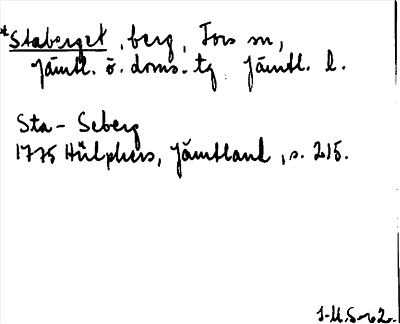 *Staberget, berg, Fors sn,
Jämtl. ö. doms. tg Jämtl. l.
Sta-Seberg
1775 Hülphers, Jämtland, s. 215.